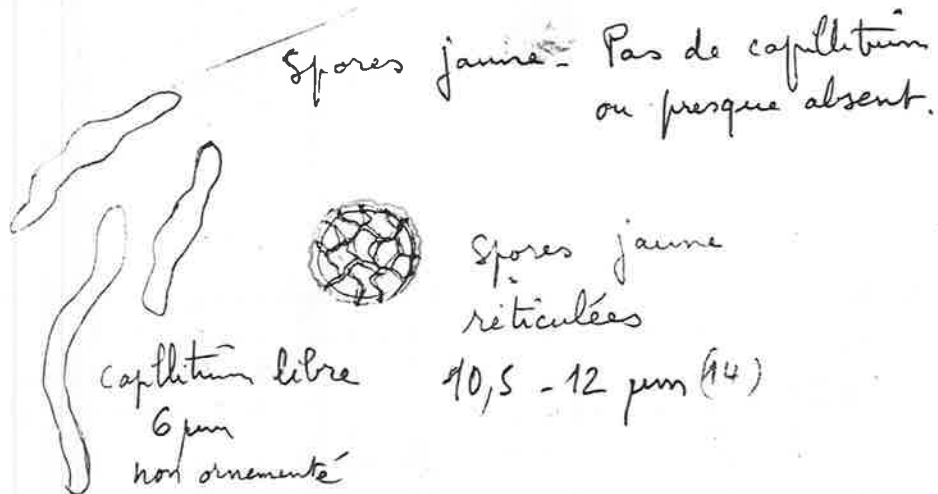 Spores jaune - Pas de capillitium
ou presque absent.
Spores jaune
réticulées
10,5 - 12 µm (14)
capillitium libre
6 µm
non ornementé